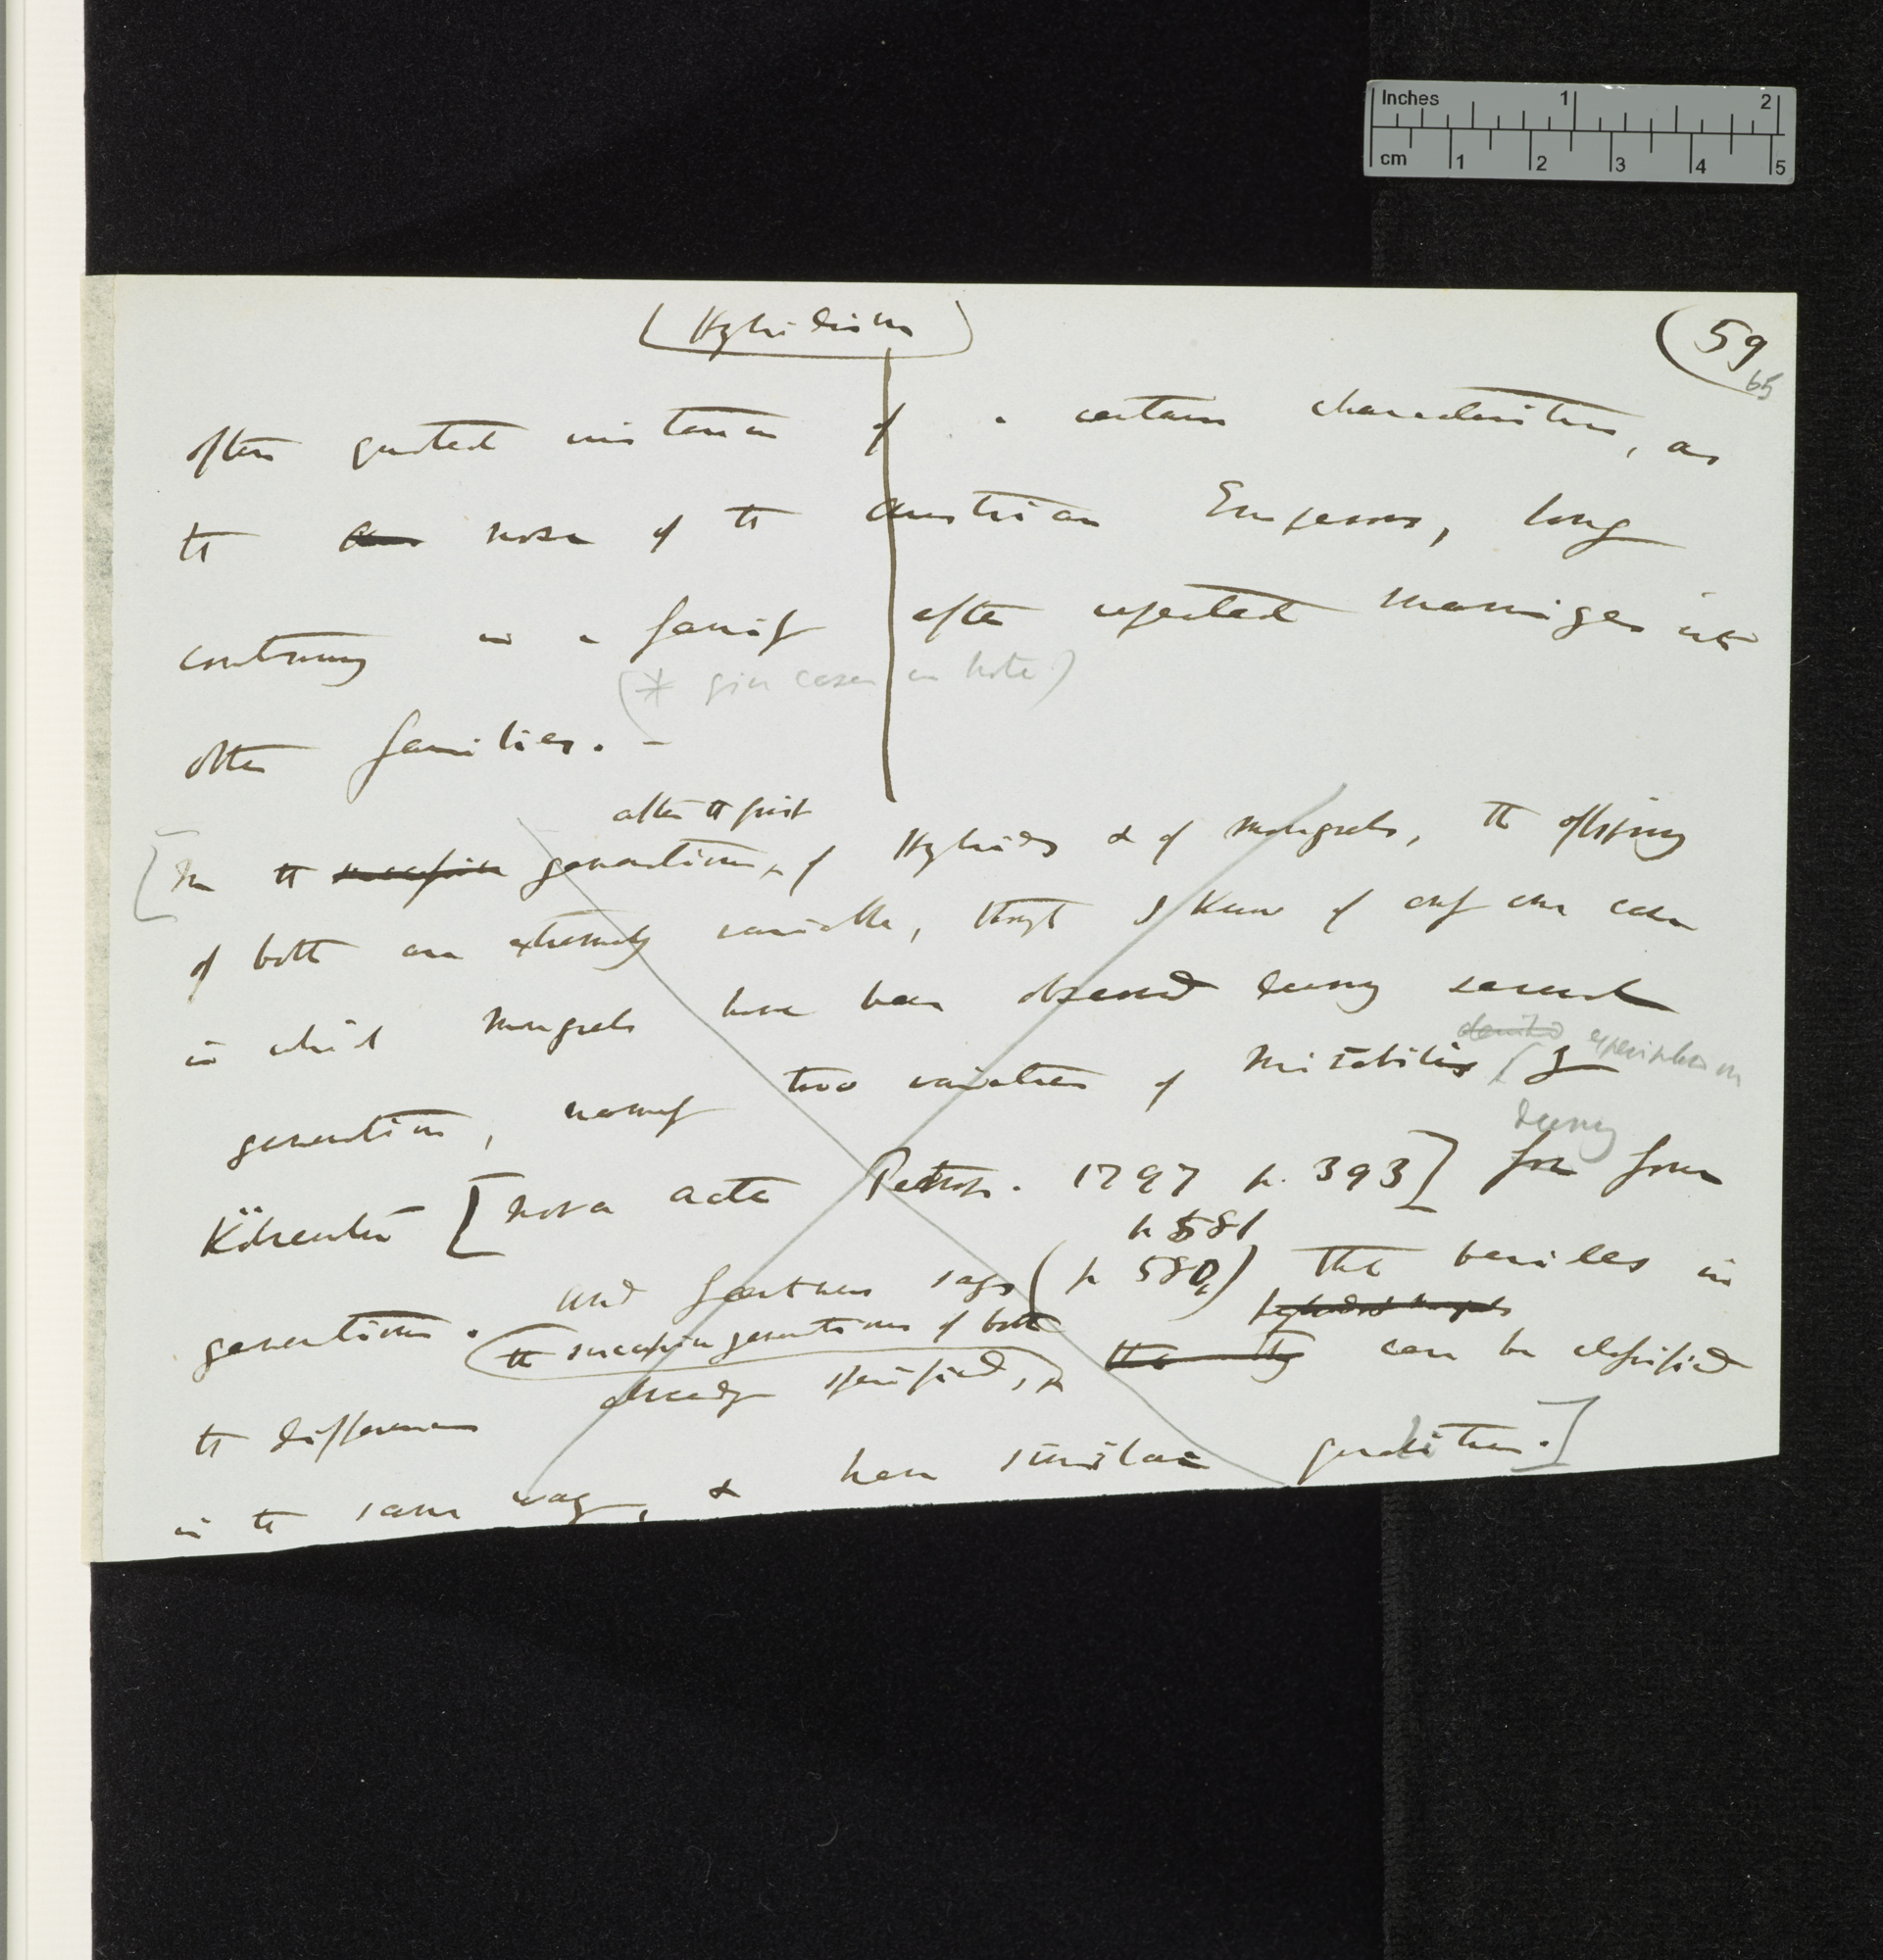 Inches 1 2
cm 1 2 3 4 5
(Hybridism)
(59
65
often quoted instances of a certain characteristics, as
the nose of the Austrian Emperors, long
continuing in a family after repeated marriages into
(* give cases in note)
other families. —
after the first
[In the successive generations, of Hybrids & of mongrels, the offspring
of both are extremely variable, though I know of only one case
in which mongrels have been observed during several
experimented on
generations, namely two varieties of Mirabilis by
during
Kölreuter [Nova Acta Petrop. 1797 p. 393] for four
p 581
generations. And Gærtner says (p 580,) that besides in
the successive generations of both hybrids & mongrels
the differences already specified, can be classified
in the same way, & have similar gradations.]